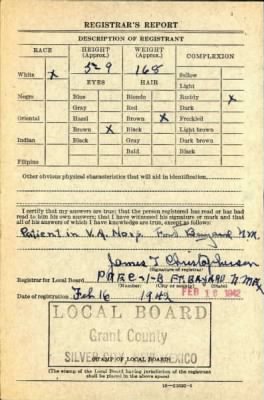 REGISTRAR'S REPORT
DESCRIPTION OF REGISTRANT
RACE HEIGHT (Approx.) WEIGHT (Approx.) COMPLEXION
5-9 168
White X EYES HAIR Sallow
Light
Negro Blue Blonde Ruddy X
Gray Red Dark
Oriental Hazel Brown X Freckled
Brown X Black Light brown
Indian Black Gray Dark brown
Bald Black
Filipino
Other obvious physical characteristics that will aid in identification
I certify that my answers are true; that the person registered has read or has had
read to him his own answers; that I have witnessed his signature or mark and that
all of his answers of which I have knowledge are true, except as follows:
Patient in V.A. Fort Bayard N.M.
James
(Signature of registrar)
Registrar for Local Board FT. BAYARD N. MEX
(Number) (City or county) (State)
Date of registration Feb 16 1942 FEB 16 1942
LOCAL BOARD
Grant County
SILVER CITY, NEW MEXICO
(STAMP OF LOCAL BOARD)
(The stamp of the Local Board having jurisdiction of the registrant
shall be placed in the above space)